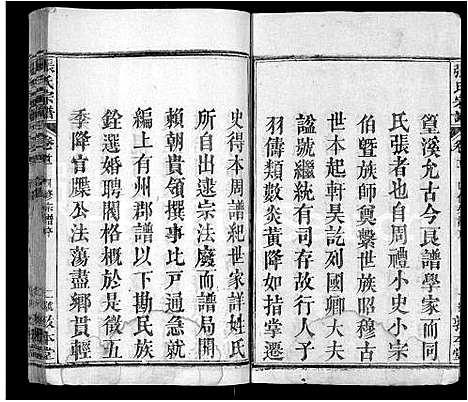 篁溪允古今良譜學家而同
氏張者也自周禮小史小宗
伯曁族師奠繫世族昭穆古
世本起軒昊訖列國卿大夫
世號繼統有司存故行人予
羽儔類數炎黃降如指掌遷
史得本周譜紀世家詳姓氏
所自出逮宗法廢而譜局開
賴朝貴領撰事比戸通急就
編上有州郡譜以下勘民族
銓選婚聘閥格概於是徵五
季降官牒公法蕩盡鄉貫輕
張氏宗譜 卷首 四修宗譜序 敦本堂